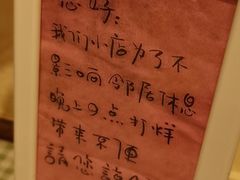 您好:
我们小店为了不
影响邻居休息
晚上9点打烊
带来不便
請您諒